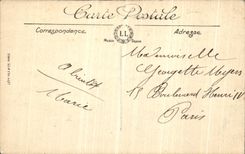 Carte Postale
Correspondance.
LL
Adresse.
Mademoiselle
Georgette Meyers
15 Boulevard Henri IV
Paris
a bientôt
Marie